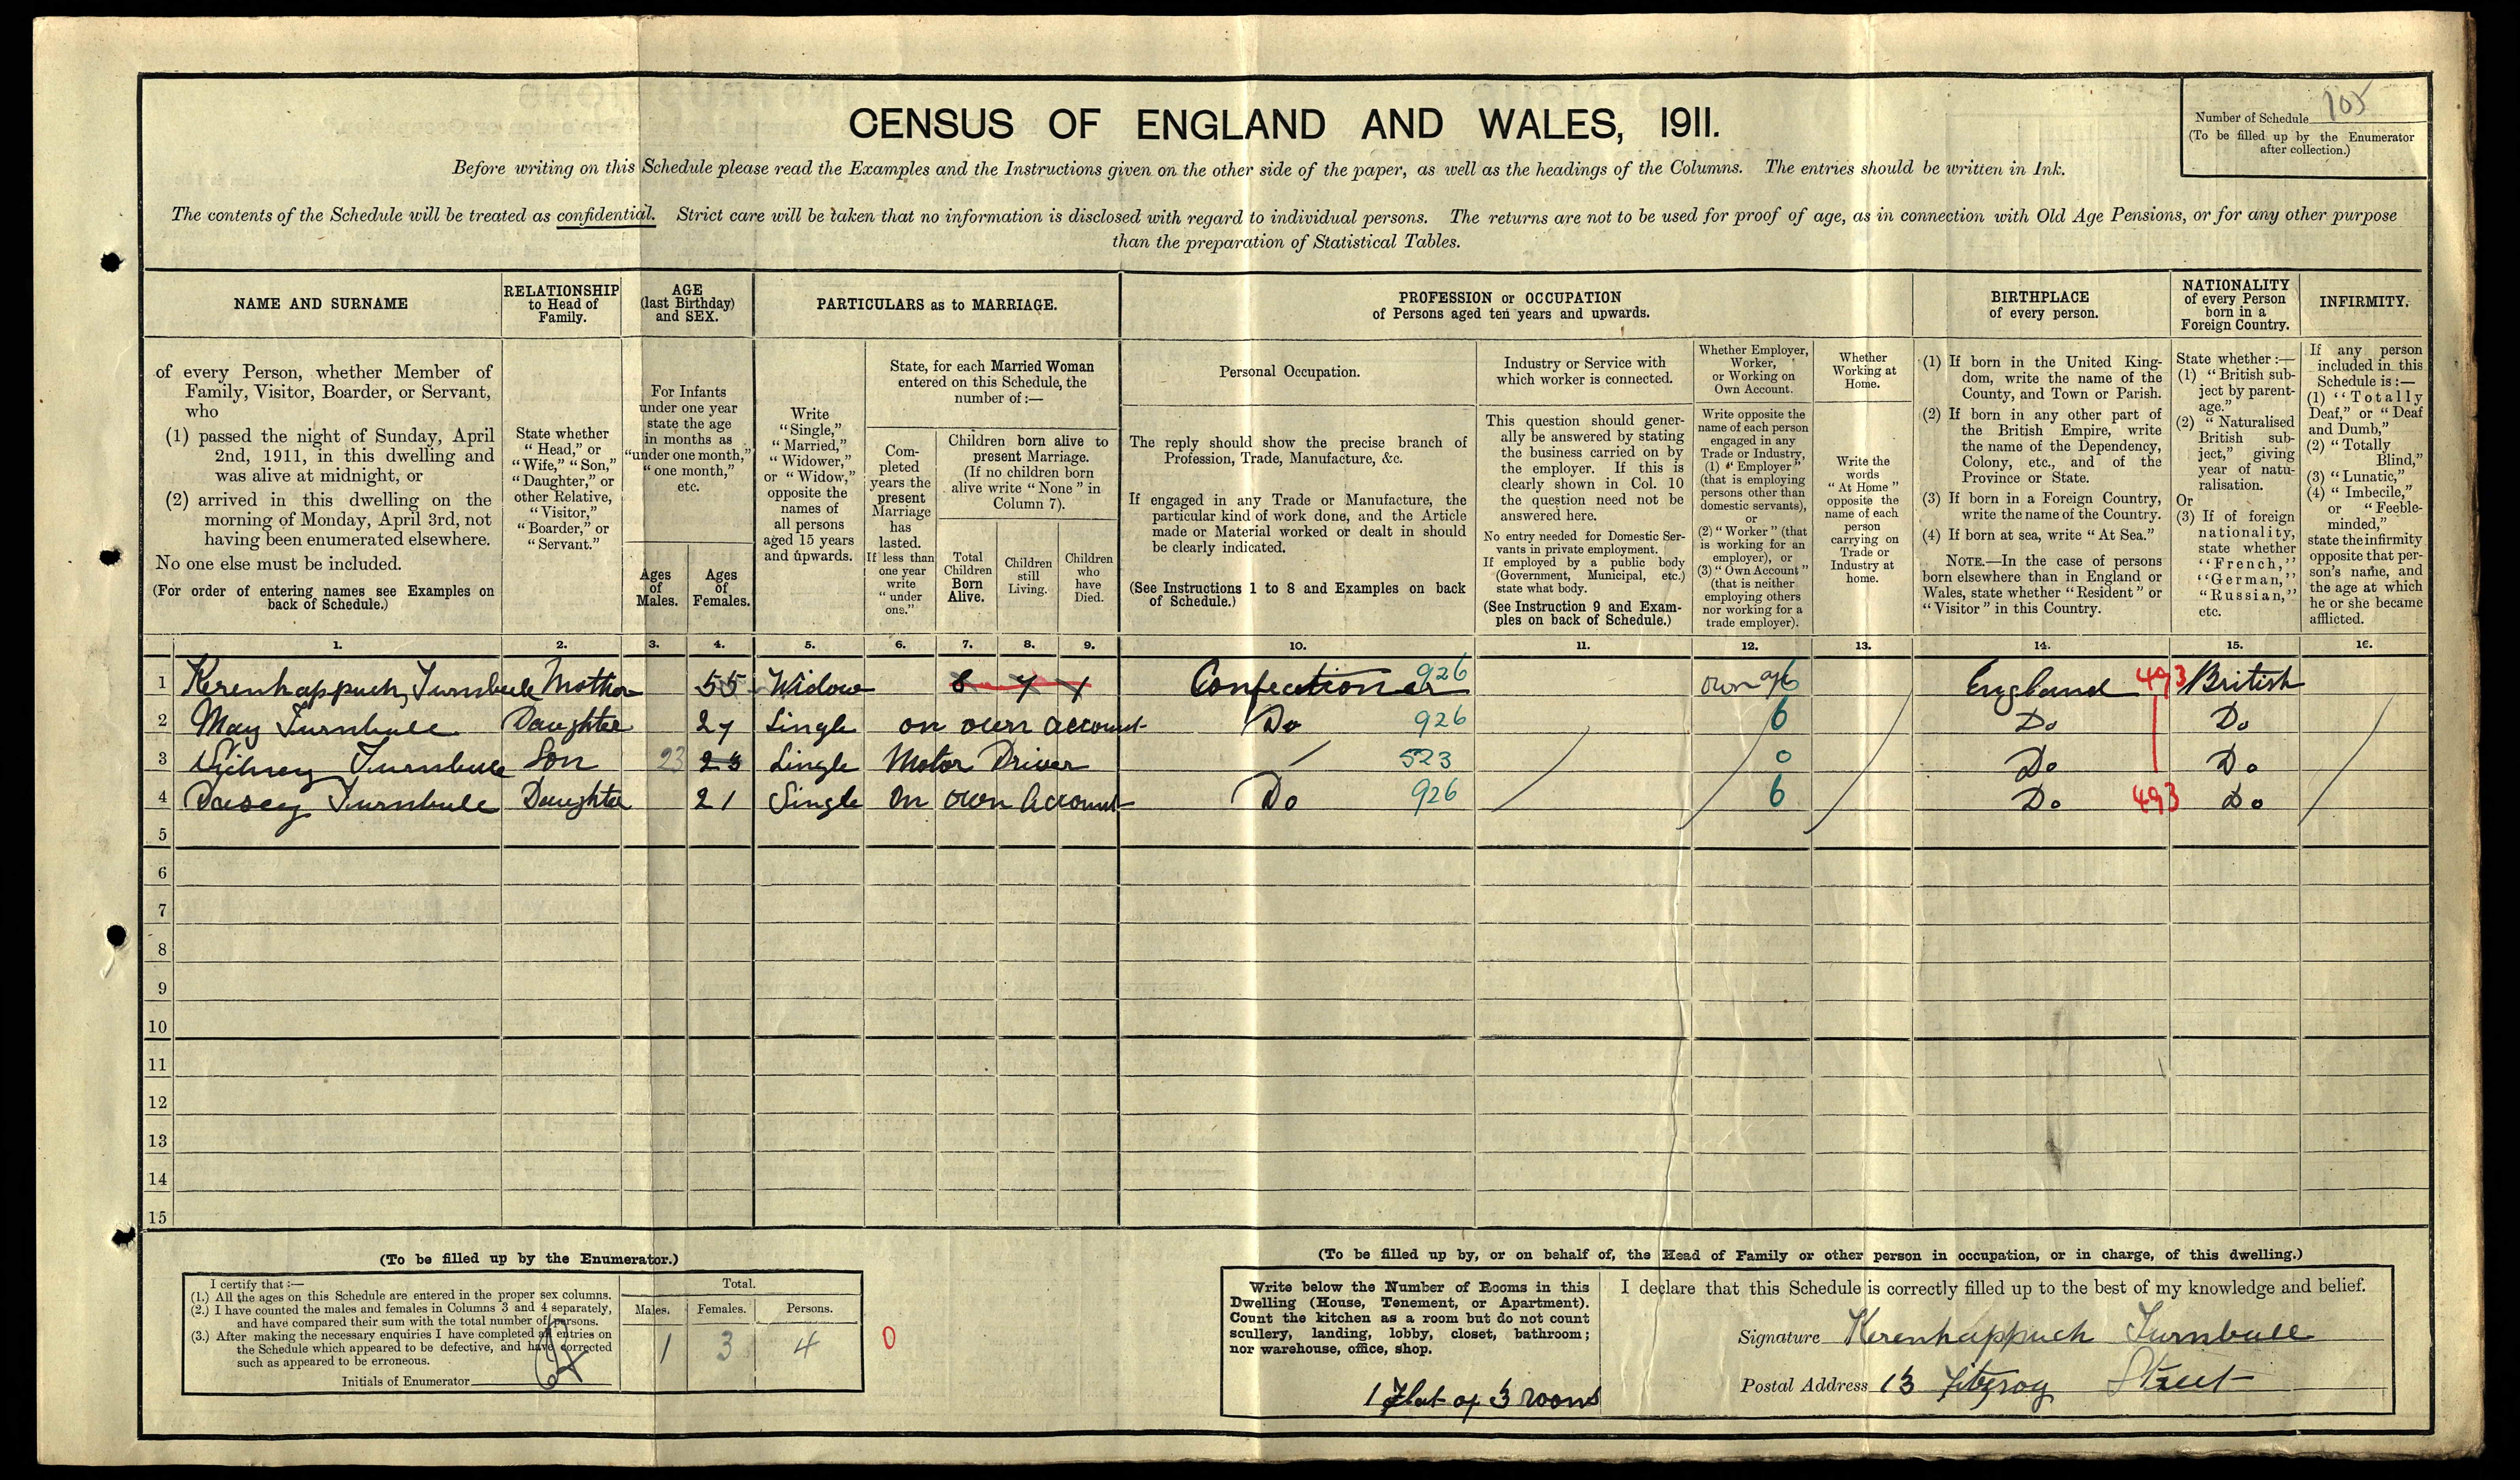 CENSUS OF ENGLAND AND WALES, 1911.
Number of Schedule 105
(To be filled up by the Enumerator
after collection.)
Before writing on this Schedule please read the Examples and the Instructions given on the other side of the paper, as well as the headings of the Columns. The entries should be written in Ink.
The contents of the Schedule will be treated as confidential. Strict care will be taken that no information is disclosed with regard to individual persons. The returns are not to be used for proof of age, as in connection with Old Age Pensions, or for any other purpose
than the preparation of Statistical Tables.
NAME AND SURNAME
of every Person, whether Member of
Family, Visitor, Boarder, or Servant,
who
(1) passed the night of Sunday, April
2nd, 1911, in this dwelling and
was alive at midnight, or
(2) arrived in this dwelling on the
morning of Monday, April 3rd, not
having been enumerated elsewhere.
No one else must be included.
(For order of entering names see Examples on
back of Schedule.)
RELATIONSHIP
to Head of
Family.
State whether
"Head," or
"Wife," "Son,"
"Daughter," or
other Relative,
"Visitor,"
"Boarder," or
"Servant."
AGE
(last Birthday)
and SEX.
For Infants
under one year
state the age
in months as
"under one month,"
"one month,"
etc.
Ages
of
Males.
Ages
of
Females.
PARTICULARS as to MARRIAGE.
Write
"Single,"
"Married,"
"Widower,"
or "Widow,"
opposite the
names of
all persons
aged 15 years
and upwards.
State, for each Married Woman
entered on this Schedule, the
number of:—
Com-
pleted
years the
present
Marriage
has
lasted.
If less than
one year
write
"under
one."
Children born alive to
present Marriage.
(If no children born
alive write "None" in
Column 7).
Total
Children
Born
Alive.
Children
still
Living.
Children
who
have
Died.
PROFESSION or OCCUPATION
of Persons aged ten years and upwards.
Personal Occupation.
The reply should show the precise branch of
Profession, Trade, Manufacture, &c.
If engaged in any Trade or Manufacture, the
particular kind of work done, and the Article
made or Material worked or dealt in should
be clearly indicated.
(See Instructions 1 to 8 and Examples on back
of Schedule.)
Industry or Service with
which worker is connected.
This question should gener-
ally be answered by stating
the business carried on by
the employer. If this is
clearly shown in Col. 10
the question need not be
answered here.
No entry needed for Domestic Ser-
vants in private employment.
If employed by a public body
(Government, Municipal, etc.)
state what body.
(See Instruction 9 and Exam-
ples on back of Schedule.)
Whether Employer,
Worker,
or Working on
Own Account.
Write opposite the
name of each person
engaged in any
Trade or Industry,
(1) "Employer"
(that is employing
persons other than
domestic servants),
or
(2) "Worker" (that
is working for an
employer), or
(3) "Own Account"
(that is neither
employing others
nor working for a
trade employer).
Whether
Working at
Home.
Write the
words
"At Home"
opposite the
name of each
person
carrying on
Trade or
Industry at
home.
BIRTHPLACE
of every person.
(1) If born in the United King-
dom, write the name of the
County, and Town or Parish.
(2) If born in any other part of
the British Empire, write
the name of the Dependency,
Colony, etc., and of the
Province or State.
(3) If born in a Foreign Country,
write the name of the Country.
(4) If born at sea, write "At Sea."
NOTE.—In the case of persons
born elsewhere than in England or
Wales, state whether "Resident" or
"Visitor" in this Country.
NATIONALITY
of every Person
born in a
Foreign Country.
State whether:—
(1) "British sub-
ject by parent-
age."
(2) "Naturalised
British sub-
ject," giving
year of natu-
ralisation.
Or
(3) If of foreign
nationality,
state whether
"French,"
"German,"
"Russian,"
etc.
INFIRMITY.
If any person
included in this
Schedule is:—
(1) "Totally
Deaf," or "Deaf
and Dumb,"
(2) "Totally
Blind,"
(3) "Lunatic,"
(4) "Imbecile,"
or "Feeble-
minded,"
state the infirmity
opposite that per-
son's name, and
the age at which
he or she became
afflicted.
1. 2. 3. 4. 5. 6. 7. 8. 9. 10. 11. 12. 13. 14. 15. 16.
1 Kerenhappuch Turnbull Mother 55 Widow 8 7 1 Confectioner 926 own 6 England 493 British
2 May Turnbull Daughter 27 Single on own account Do 926 6 Do Do
3 Sidney Turnbull Son 23 23 Single Motor Driver 523 0 Do Do
4 Daisey Turnbull Daughter 21 Single on own Account Do 926 6 Do 493 Do
5
6
7
8
9
10
11
12
13
14
15
(To be filled up by the Enumerator.)
I certify that:—
(1.) All the ages on this Schedule are entered in the proper sex columns.
(2.) I have counted the males and females in Columns 3 and 4 separately,
and have compared their sum with the total number of persons.
(3.) After making the necessary enquiries I have completed all entries on
the Schedule which appeared to be defective, and have corrected
such as appeared to be erroneous.
Initials of Enumerator
Total.
Males. Females. Persons.
1 3 4 0
(To be filled up by, or on behalf of, the Head of Family or other person in occupation, or in charge, of this dwelling.)
Write below the Number of Rooms in this
Dwelling (House, Tenement, or Apartment).
Count the kitchen as a room but do not count
scullery, landing, lobby, closet, bathroom;
nor warehouse, office, shop.
1 flat of 3 rooms
I declare that this Schedule is correctly filled up to the best of my knowledge and belief.
Signature Kerenhappuch Turnbull
Postal Address 13 Fitzroy Street